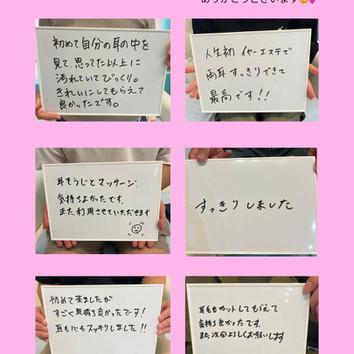 ありがとうございます
初めて自分の耳の中を
見て、思ってた以上に
汚れていてびっくり。
きれいにしてもらえて
良かったです。
人生初 イヤーエステで
両耳すっきりできて
最高です!!
耳そうじとマッサージ、
気持ちよかったです。
また利用させていただきます
すっきりしました
初めて来ましたが
すごく気持ち良かったです!
耳もにもスッキリしました!!
耳毛もカットしてもらえて
気持ち良かったです。
また次回よろしくお願いします